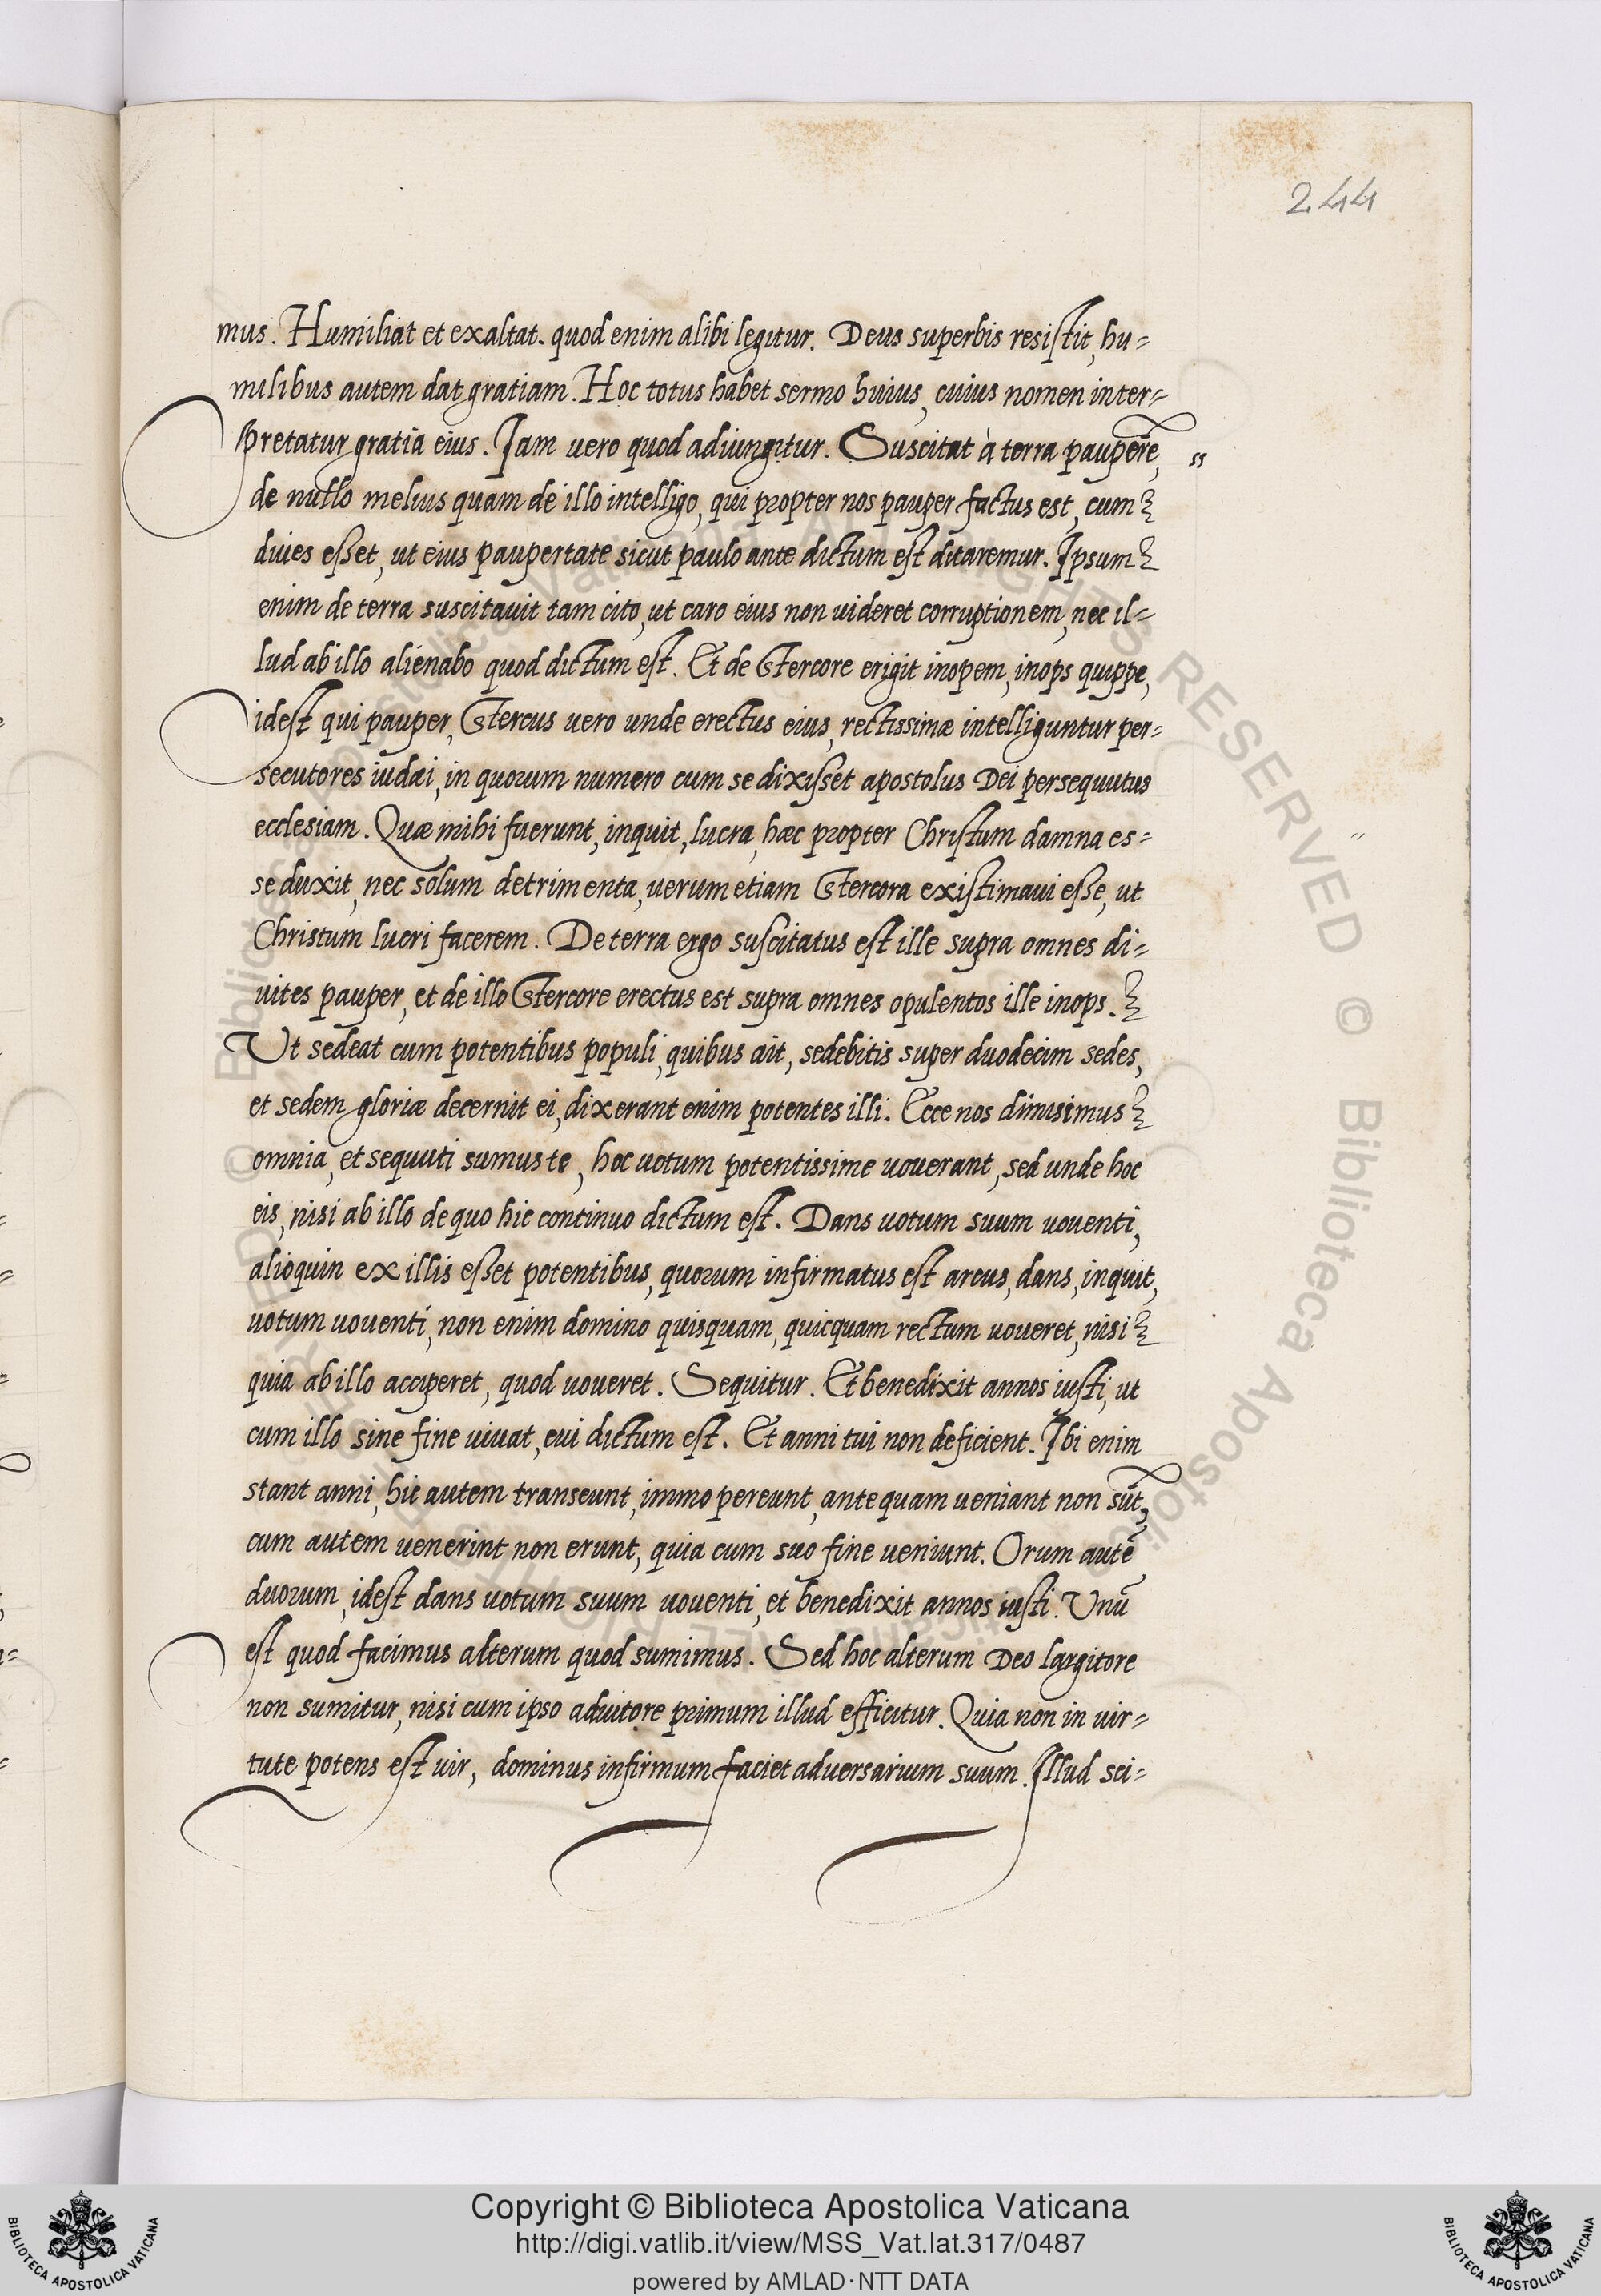 244
mus. Humiliat et exaltat. quod enim alibi legitur. Deus superbis resistit, hu=
milibus autem dat gratiam. Hoc totus habet sermo huius, cuius nomen inter=
pretatur gratia eius. Jam uero quod adiungitur. Suscitat à terra pauperē,
de nullo melius quam de illo intelligo, qui propter nos pauper factus est, cum
diues esset, ut eius paupertate sicut paulo ante dictum est ditaremur. Ipsum
enim de terra suscitauit tam cito, ut caro eius non uideret corruptionem, nec il=
lud ab illo alienabo quod dictum est. Et de Stercore erigit inopem, inops quippe,
idest qui pauper, Stercus uero unde erectus eius, rectissimæ intelliguntur per=
secutores iudæi, in quorum numero cum se dixisset apostolus Dei persequutus
ecclesiam. Quæ mihi fuerunt, inquit, lucra, hæc propter Christum damna es=
se duxit, nec solum detrimenta, uerum etiam Stercora existimaui esse, ut
Christum lucri facerem. De terra ergo suscitatus est ille supra omnes di=
uites pauper, et de illo Stercore erectus est supra omnes opulentos ille inops.
Ut sedeat cum potentibus populi, quibus ait, sedebitis super duodecim sedes,
et sedem gloriæ decernit ei, dixerant enim potentes illi. Ecce nos dimisimus
omnia, et sequuti sumus te, hoc uotum potentissime uouerant, sed unde hoc
eis, nisi ab illo de quo hic continuo dictum est. Dans uotum suum uouenti,
alioquin ex illis esset potentibus, quorum infirmatus est arcus, dans, inquit,
uotum uouenti, non enim domino quisquam, quicquam rectum uoueret, nisi
quia ab illo acciperet, quod uoueret. Sequitur. Et benedixit annos iusti, ut
cum illo sine fine uiuat, cui dictum est. Et anni tui non deficient. Ibi enim
stant anni, hic autem transeunt, immo pereunt, ante quam ueniant non sūt,
cum autem uenerint non erunt, quia cum suo fine ueniunt. Orum autē
duorum, idest dans uotum suum uouenti, et benedixit annos iusti. Unū
est quod facimus alterum quod sumimus. Sed hoc alterum Deo largitore
non sumitur, nisi cum ipso adiutore primum illud efficitur. Quia non in uir=
tute potens est uir, dominus infirmum faciet aduersarium suum. Illud sci=
Copyright © Biblioteca Apostolica Vaticana
http://digi.vatlib.it/view/MSS_Vat.lat.317/0487
powered by AMLAD·NTT DATA